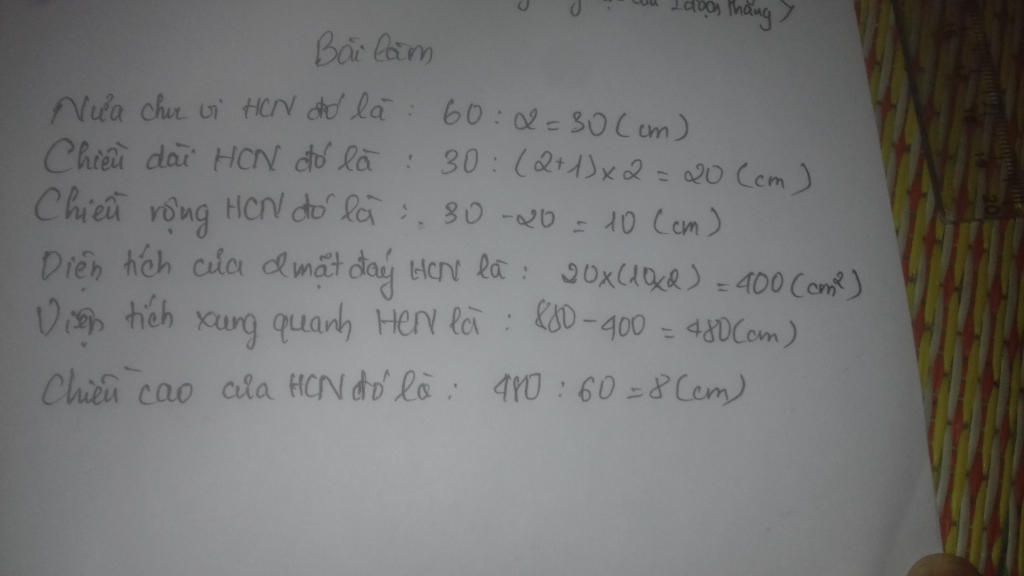 của 1 đoạn thẳng)
Bài làm
Nửa chu vi HCN đó là : 60 : 2 = 30 (cm)
Chiều dài HCN đó là : 30 : (2+1) x 2 = 20 (cm)
Chiều rộng HCN đó là : 30 - 20 = 10 (cm)
Diện tích của 2 mặt đáy HCN là : 20x(10x2) = 400 (cm²)
Diện tích xung quanh HCN là : 880 - 400 = 480 (cm)
Chiều cao của HCN đó là : 480 : 60 = 8 (cm)